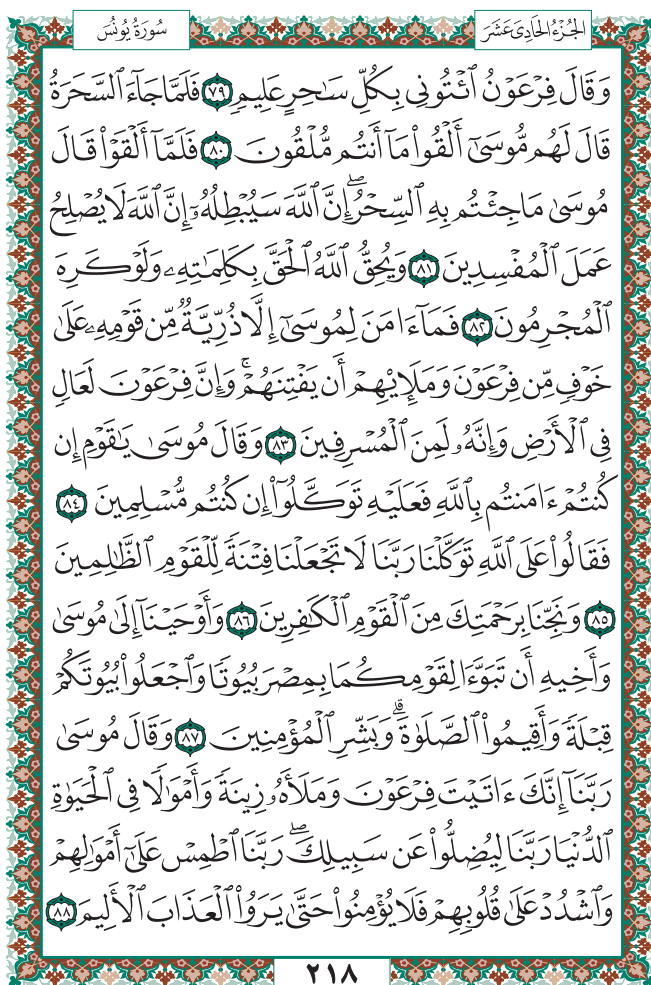 الجُزْءُ الحَادِي عَشَرَ
سُورَةُ يُونُسَ
وَقَالَ فِرْعَوْنُ ٱئْتُونِي بِكُلِّ سَٰحِرٍ عَلِيمٍ ٧٩ فَلَمَّا جَآءَ ٱلسَّحَرَةُ
قَالَ لَهُم مُّوسَىٰٓ أَلْقُوا۟ مَآ أَنتُم مُّلْقُونَ ٨٠ فَلَمَّآ أَلْقَوْا۟ قَالَ
مُوسَىٰ مَا جِئْتُم بِهِ ٱلسِّحْرُۖ إِنَّ ٱللَّهَ سَيُبْطِلُهُۥٓ إِنَّ ٱللَّهَ لَا يُصْلِحُ
عَمَلَ ٱلْمُفْسِدِينَ ٨١ وَيُحِقُّ ٱللَّهُ ٱلْحَقَّ بِكَلِمَٰتِهِۦ وَلَوْ كَرِهَ
ٱلْمُجْرِمُونَ ٨٢ فَمَآ ءَامَنَ لِمُوسَىٰٓ إِلَّا ذُرِّيَّةٌ مِّن قَوْمِهِۦ عَلَىٰ
خَوْفٍ مِّن فِرْعَوْنَ وَمَلَإِي۟هِمْ أَن يَفْتِنَهُمْۚ وَإِنَّ فِرْعَوْنَ لَعَالٍ
فِي ٱلْأَرْضِ وَإِنَّهُۥ لَمِنَ ٱلْمُسْرِفِينَ ٨٣ وَقَالَ مُوسَىٰ يَٰقَوْمِ إِن
كُنتُمْ ءَامَنتُم بِٱللَّهِ فَعَلَيْهِ تَوَكَّلُوٓا۟ إِن كُنتُم مُّسْلِمِينَ ٨٤
فَقَالُوا۟ عَلَى ٱللَّهِ تَوَكَّلْنَا رَبَّنَا لَا تَجْعَلْنَا فِتْنَةً لِّلْقَوْمِ ٱلظَّٰلِمِينَ
٨٥ وَنَجِّنَا بِرَحْمَتِكَ مِنَ ٱلْقَوْمِ ٱلْكَٰفِرِينَ ٨٦ وَأَوْحَيْنَآ إِلَىٰ مُوسَىٰ
وَأَخِيهِ أَن تَبَوَّءَا لِقَوْمِكُمَا بِمِصْرَ بُيُوتًا وَٱجْعَلُوا۟ بُيُوتَكُمْ
قِبْلَةً وَأَقِيمُوا۟ ٱلصَّلَوٰةَۗ وَبَشِّرِ ٱلْمُؤْمِنِينَ ٨٧ وَقَالَ مُوسَىٰ
رَبَّنَآ إِنَّكَ ءَاتَيْتَ فِرْعَوْنَ وَمَلَأَهُۥ زِينَةً وَأَمْوَٰلًا فِي ٱلْحَيَوٰةِ
ٱلدُّنْيَا رَبَّنَا لِيُضِلُّوا۟ عَن سَبِيلِكَۖ رَبَّنَا ٱطْمِسْ عَلَىٰٓ أَمْوَٰلِهِمْ
وَٱشْدُدْ عَلَىٰ قُلُوبِهِمْ فَلَا يُؤْمِنُوا۟ حَتَّىٰ يَرَوُا۟ ٱلْعَذَابَ ٱلْأَلِيمَ ٨٨
٢١٨